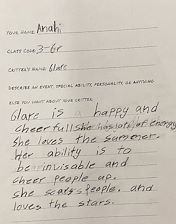 YOUR NAME: Anahi
CLASS CODE: 3-6r
CRITTER'S NAME: Glare
DESCRIBE AN EVENT, SPECIAL ABILITY, PERSONALITY, OR ANYTHING
ELSE YOU WANT ABOUT YOUR CRITTER:
Glare is a happy and
cheerfull she has lots of energy
she loves the summer.
Her ability is to
be invisable and
cheer people up.
she people, and
loves the stars.